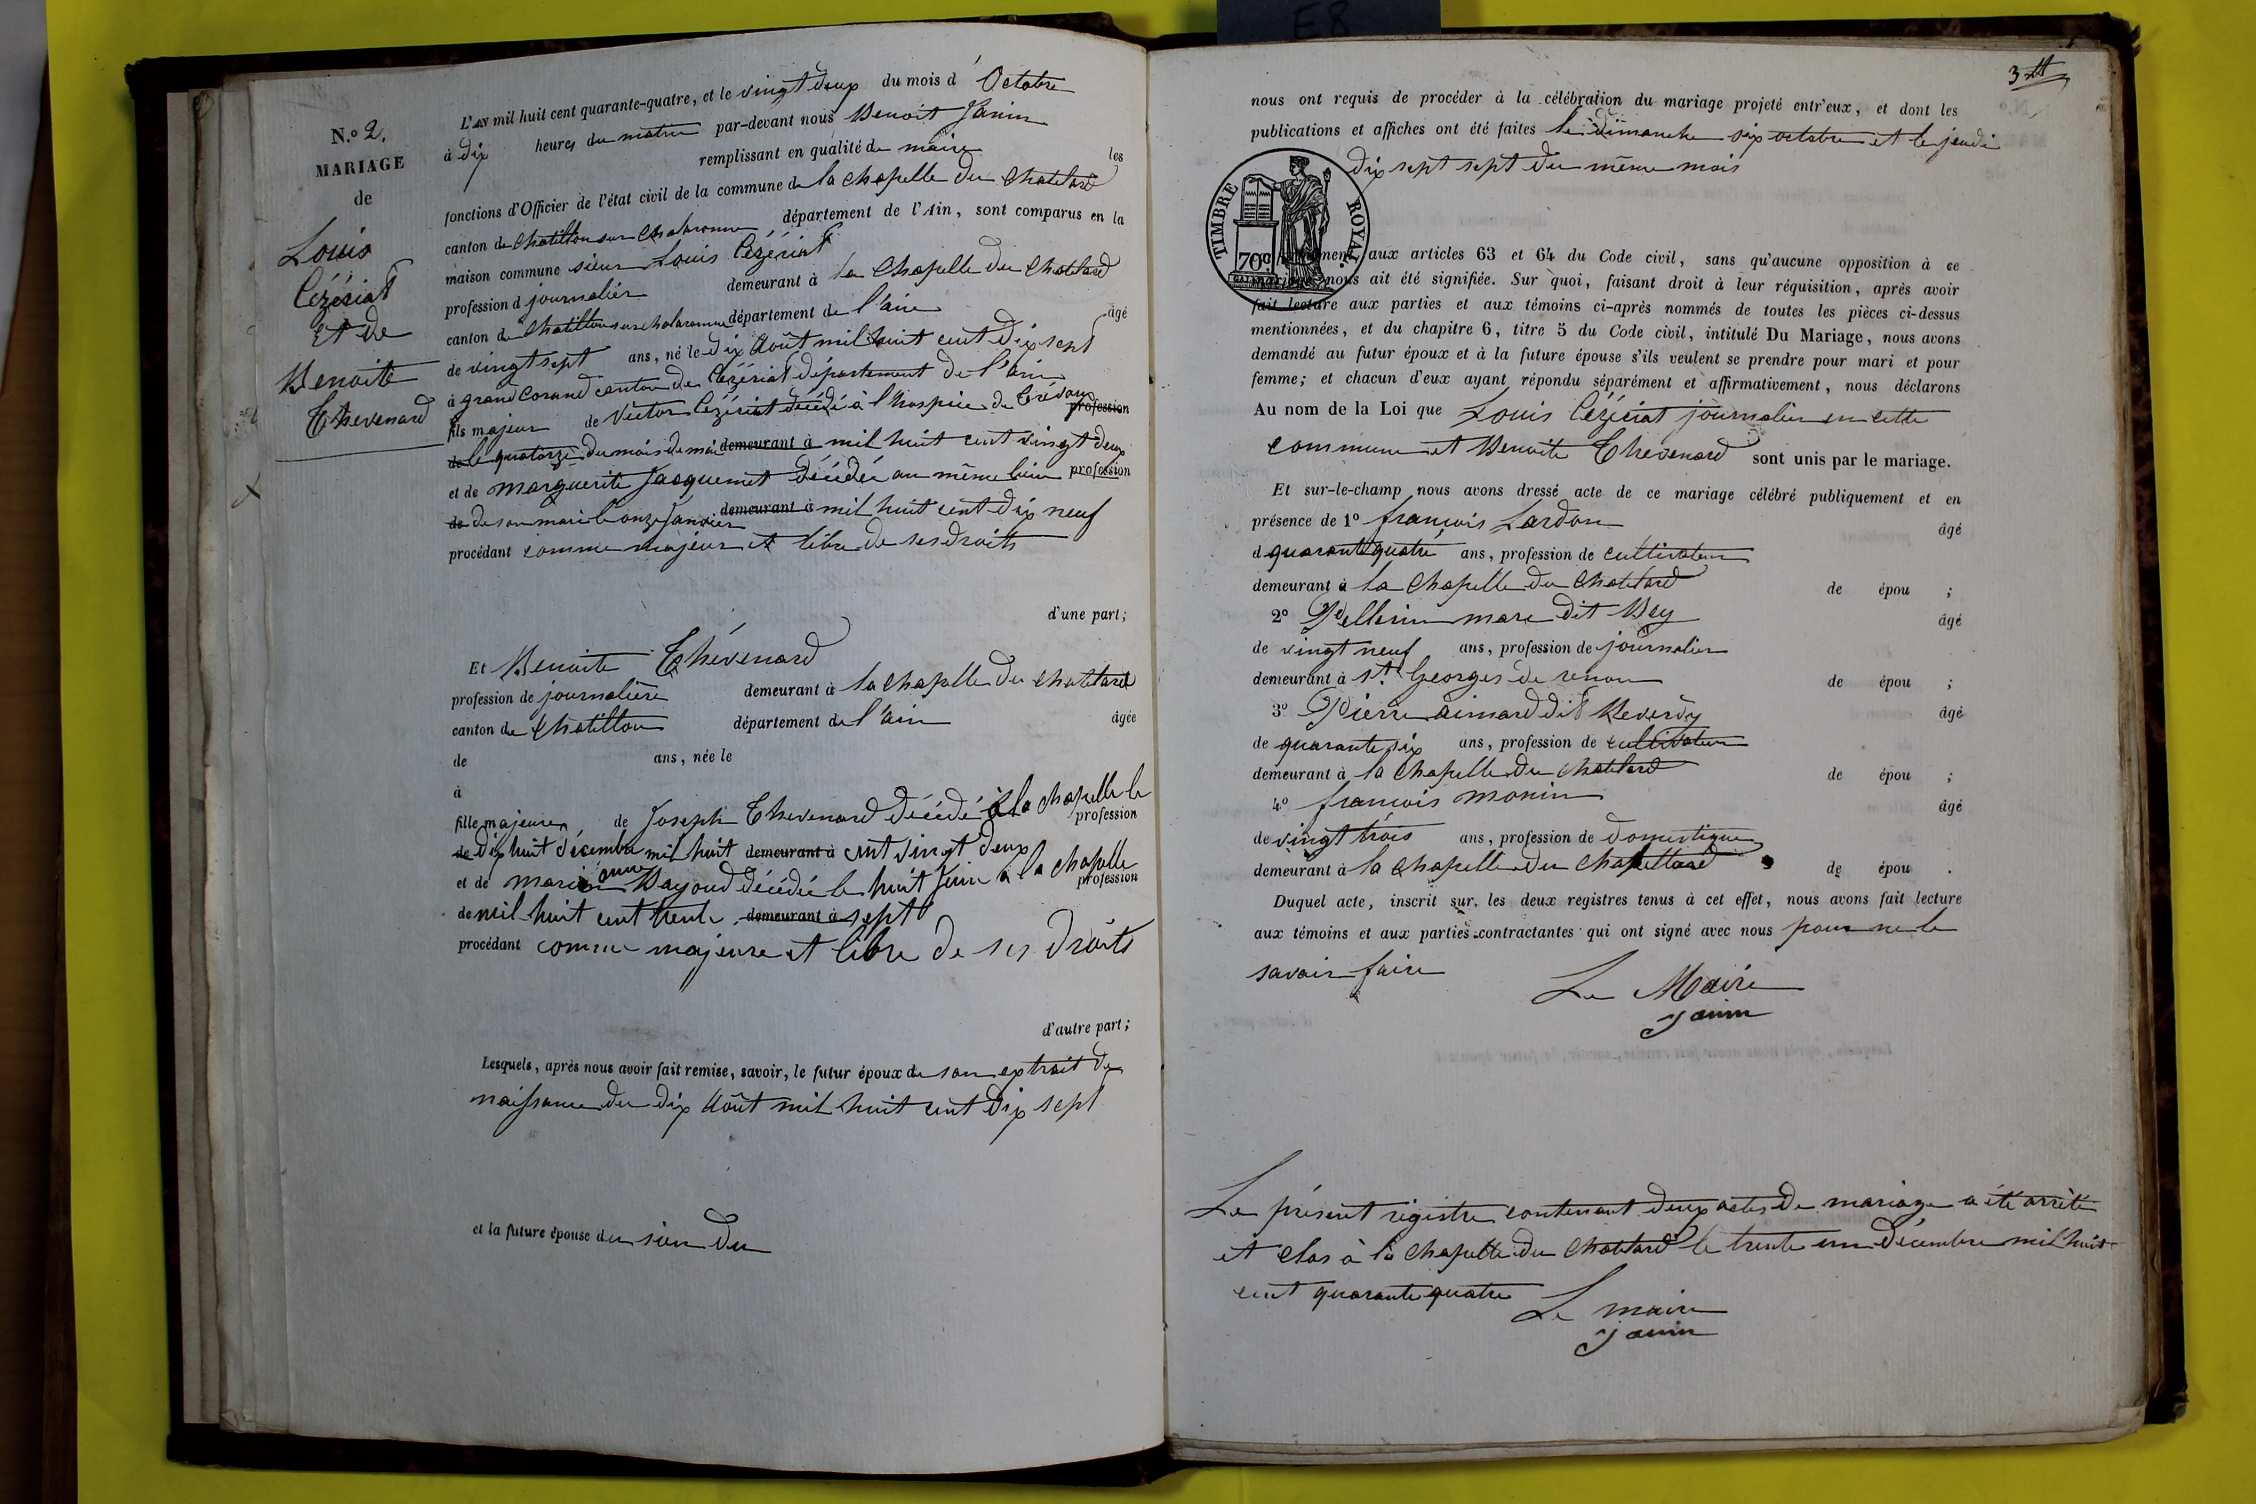 E8
N.o 2.
MARIAGE
de
Louis
Cézériat
Et de
Benoite
Thevenard
L'AN mil huit cent quarante-quatre, et le vingt deux du mois d'Octobre
à dix heures du matin par-devant nous Benoit Janin
remplissant en qualité de maire les
fonctions d'Officier de l'état civil de la commune de la chapelle du chatelard
canton de chatillon sur chalaronne département de l'Ain, sont comparus en la
maison commune sieur Louis Cézériat
profession d journalier demeurant à la chapelle du chatelard
canton de chatillon sur chalaronne département de l'ain âgé
de vingt sept ans, né le dix Août mil huit cent dix sept
à grand corand canton de Cézériat département de l'ain
fils majeur de Victor Cézériat décédé à l'hospice de Trévoux profession
de le quatorze du mois de mai demeurant à mil huit cent vingt deux
et de marguerite Jacquemet décédée au même lieu profession
de de son mari le onze Janvier demeurant à mil huit cent dix neuf
procédant comme majeur et libre de ses droits
d'une part;
Et Benoite Thévenard
profession de journalière demeurant à la chapelle du chatelard
canton de chatillon département de l'ain âgée
de ans, née le
à
fille majeure de Joseph Thevenard décédé à la chapelle le
profession
de dix huit décembre mil huit demeurant à cent vingt deux
et de marie anne Bayoud décédée le huit Juin à la chapelle
profession
de mil huit cent trente demeurant à sept
procédant comme majeure et libre de ses droits
d'autre part;
Lesquels, après nous avoir fait remise, savoir, le futur époux de son extrait de
naissance du dix Août mil huit cent dix sept
et la future épouse du sien du
3
nous ont requis de procéder à la célébration du mariage projeté entr'eux, et dont les
publications et affiches ont été faites le dimanche six octobre et le jeudi
dix sept sept du même mois
TIMBRE ROYAL
70c
aux articles 63 et 64 du Code civil, sans qu'aucune opposition à ce
mariage nous ait été signifiée. Sur quoi, faisant droit à leur réquisition, après avoir
fait lecture aux parties et aux témoins ci-après nommés de toutes les pièces ci-dessus
mentionnées, et du chapitre 6, titre 5 du Code civil, intitulé Du Mariage, nous avons
demandé au futur époux et à la future épouse s'ils veulent se prendre pour mari et pour
femme; et chacun d'eux ayant répondu séparément et affirmativement, nous déclarons
Au nom de la Loi que Louis Cézériat journalier en cette
commune et Benoite Thevenard sont unis par le mariage.
Et sur-le-champ nous avons dressé acte de ce mariage célébré publiquement et en
présence de 1o françois Lardon âgé
d quarante quatre ans, profession de cultivateur
demeurant à la chapelle du chatelard de épou ;
2o Pellerin marc dit Bey âgé
de vingt neuf ans, profession de journalier
demeurant à st. Georges de renon de épou ;
3o Pierre aimard dit Reverdy âgé
de quarante six ans, profession de cultivateur
demeurant à la chapelle du chatelard de épou ;
4o françois monin âgé
de vingt trois ans, profession de domestique
demeurant à la chapelle du chapellard de épou .
Duquel acte, inscrit sur les deux registres tenus à cet effet, nous avons fait lecture
aux témoins et aux parties contractantes qui ont signé avec nous pour ne le
savoir faire
Le Maire
Janin
Le présent registre contenant deux actes de mariage a été arrêté
et clos à la chapelle du chatelard le trente un décembre mil huit
cent quarante quatre
Le maire
Janin